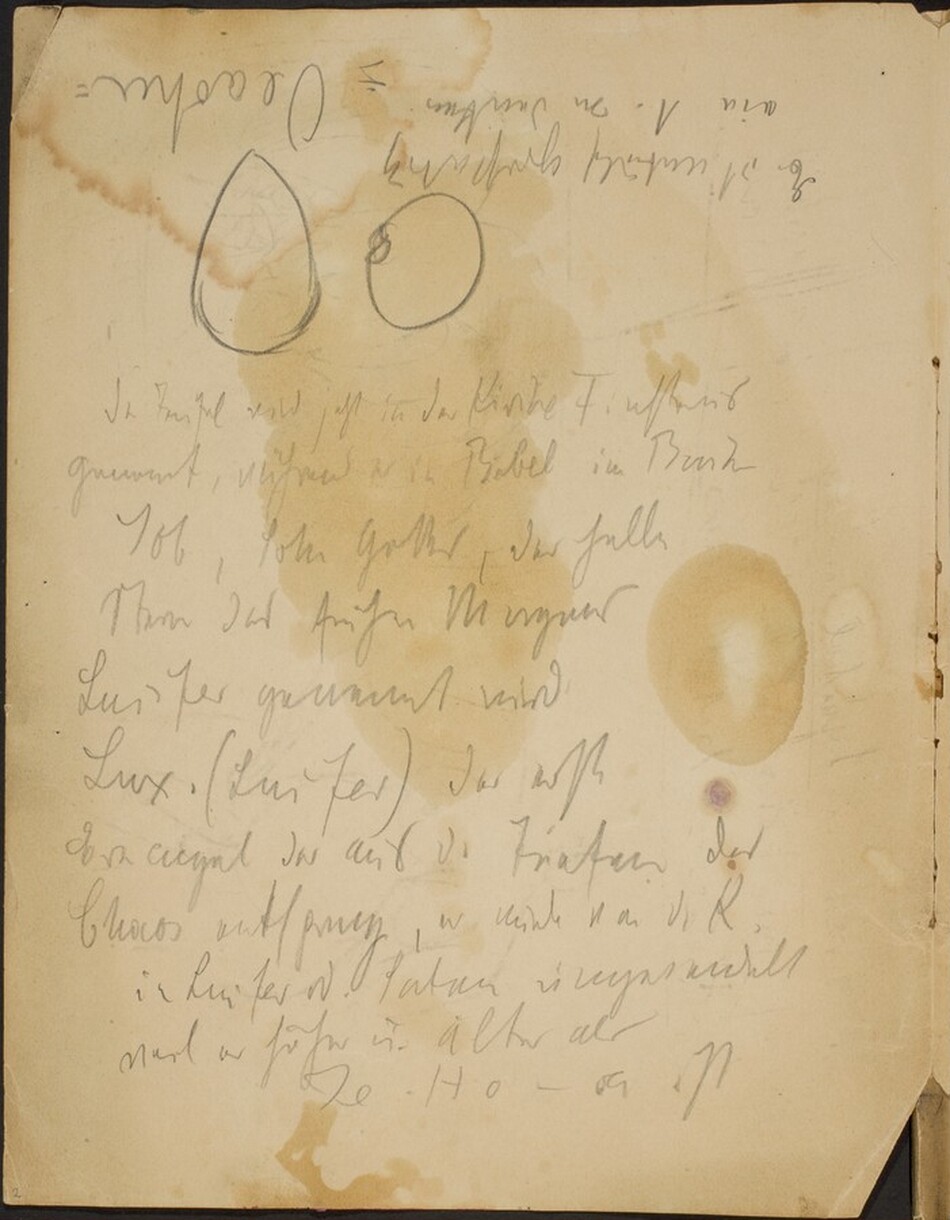 Der Teufel wird jetzt in der Kirche Finsternis
genannt, während er in Bibel im Buch
Iob, Sohn Gottes, der helle
Stern des frühen Morgens
Luzifer genannt wird
Lux. (Luzifer) der erste
Erzengel der aus d. Tiefen des
Chaos entsprang, er wurde von d. K.
in Luzifer od. Satan umgewandelt
weil er höher u. älter als
Je-Ho-va ist